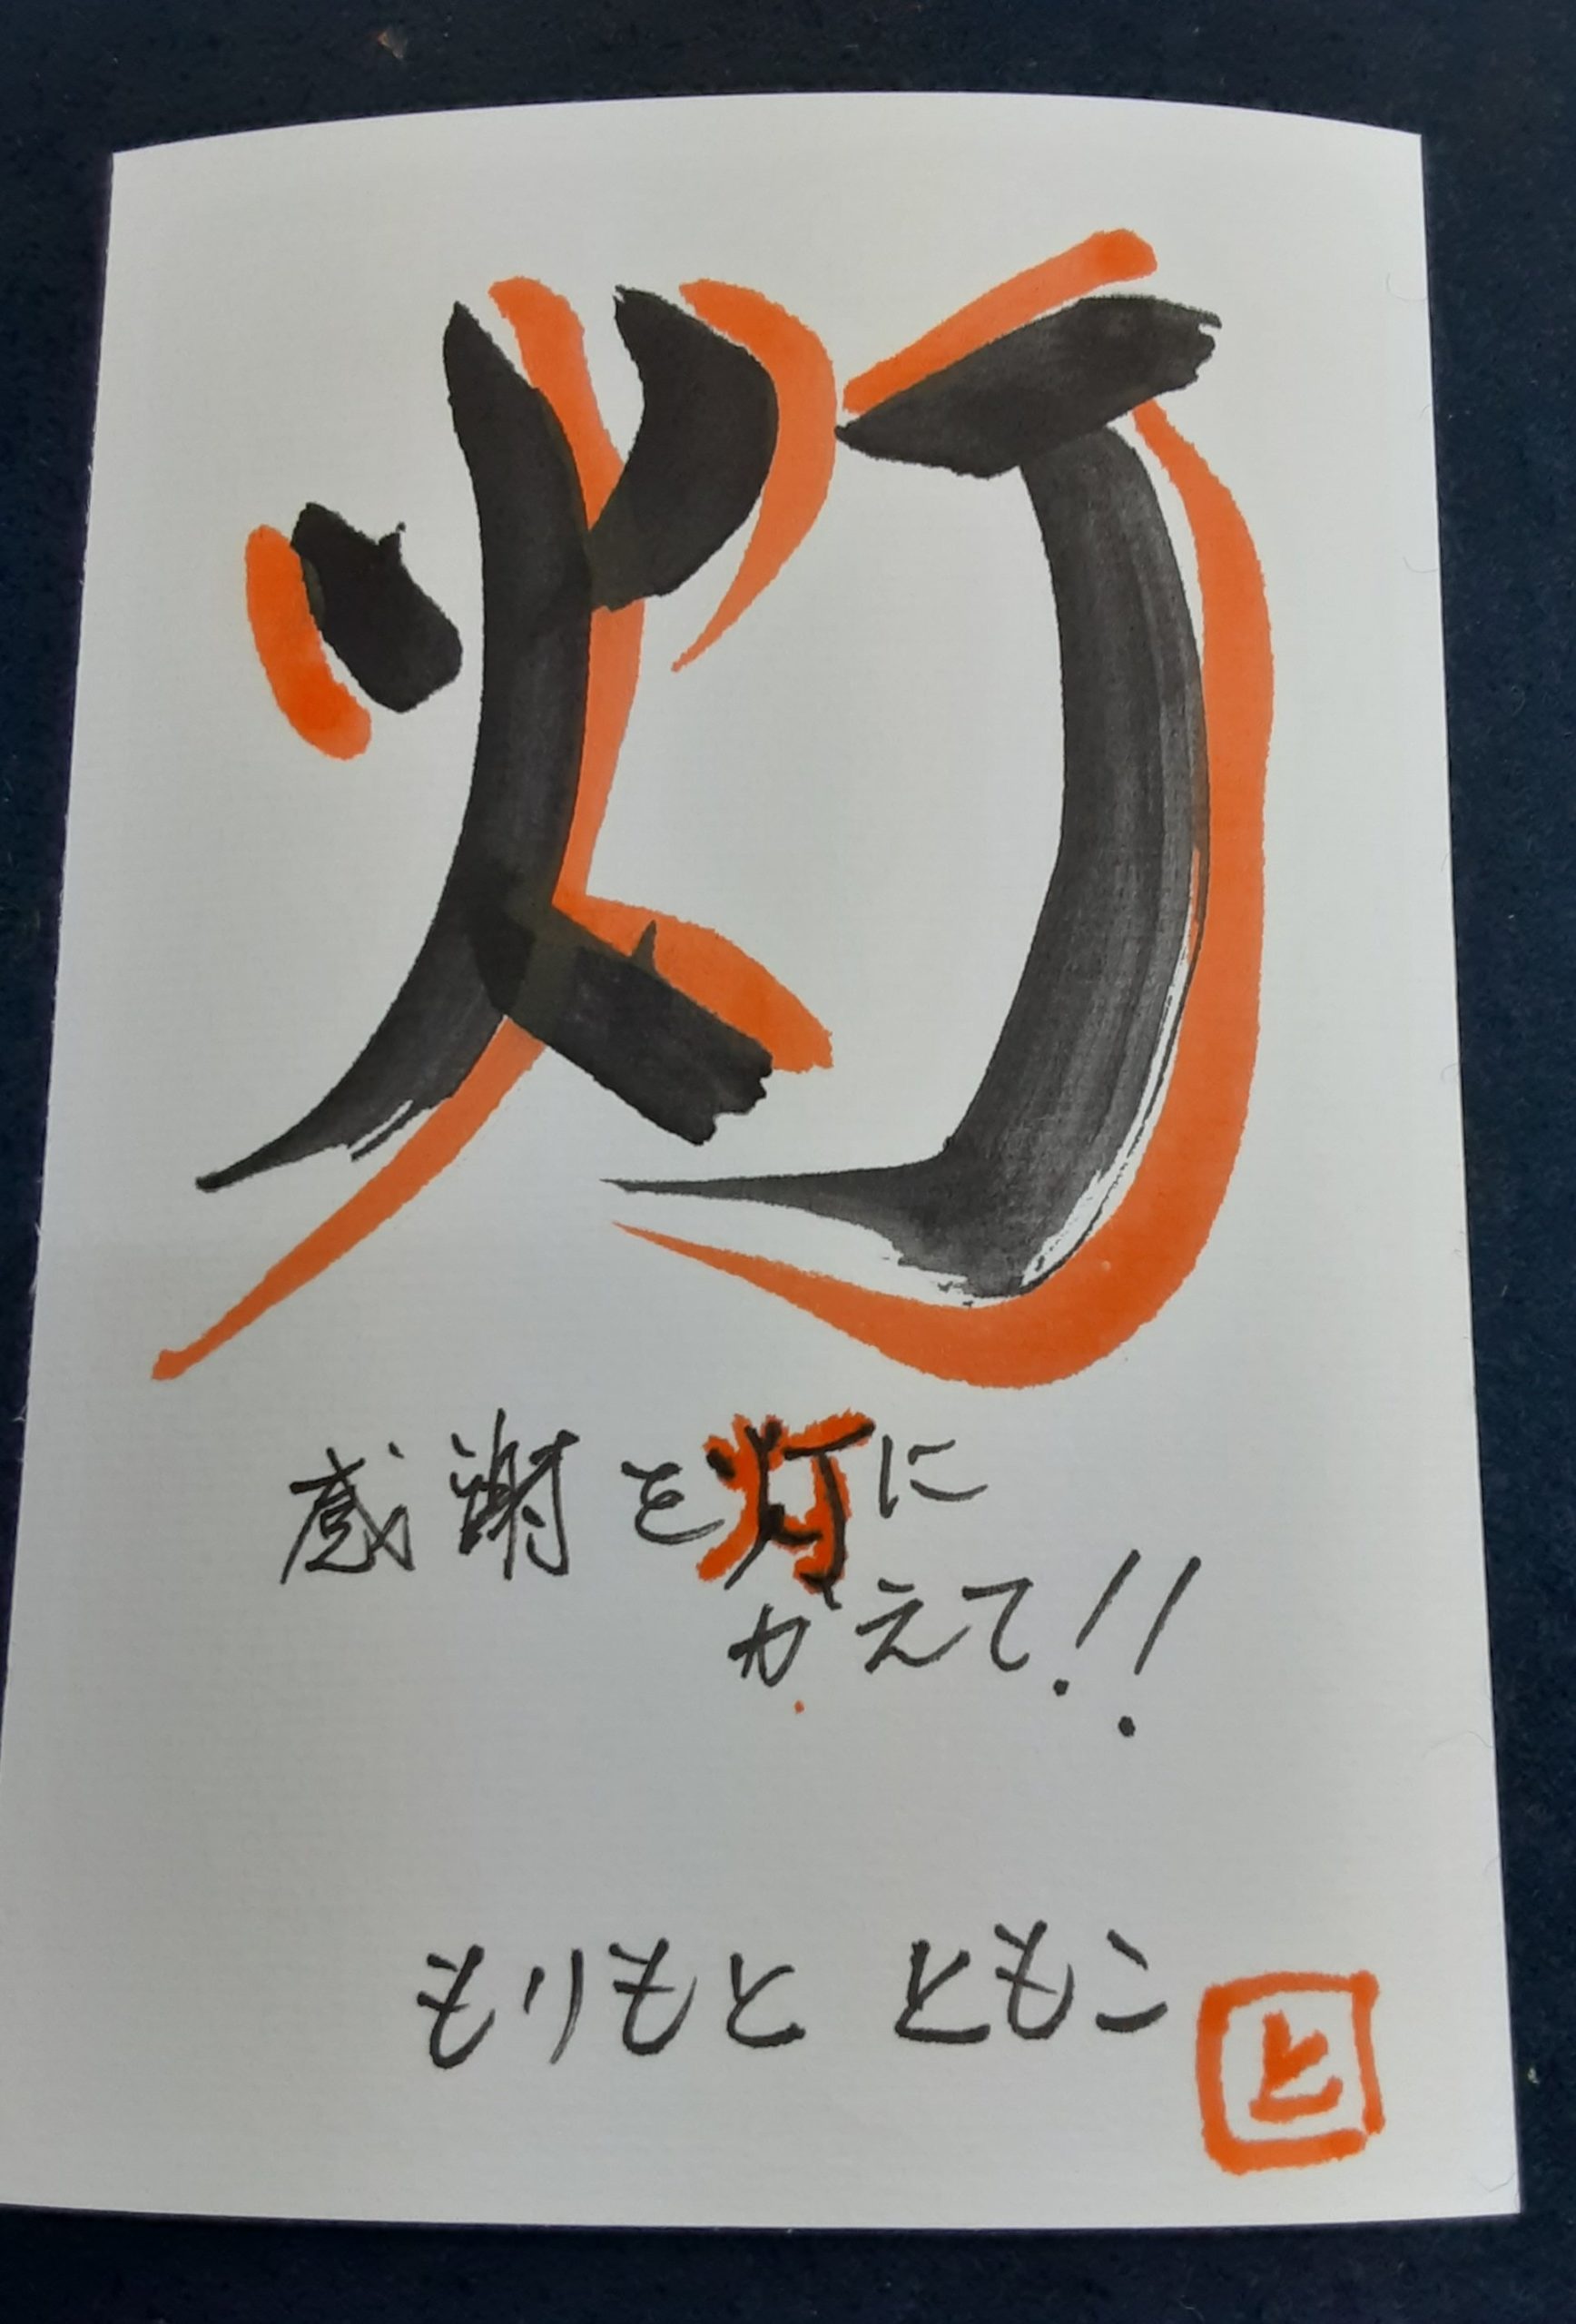 灯
感謝を灯に
かえて!!
もりもと ともこ
と